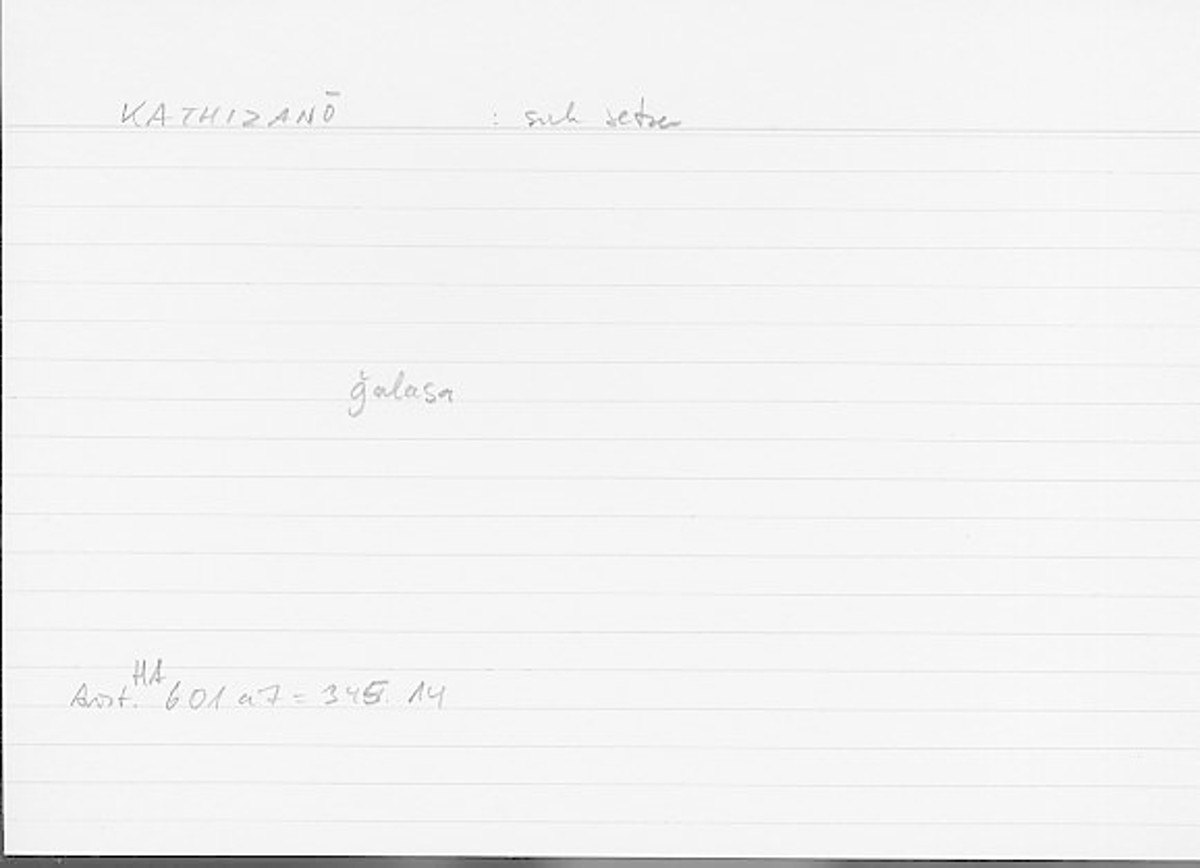 KATHIZANŌ : sich setzen
ǧalasa
HA
Arist. 601 a7 = 345. 14